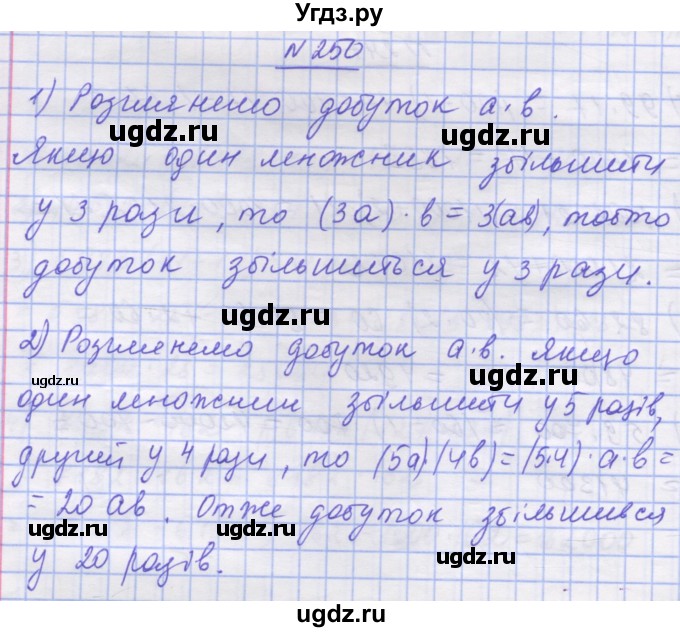 Угдз.ру
N 250
1) Розглянемо добуток a·в.
ugdz.ru ugdz.ru
Якщо один множник збільшити
у 3 рази, то (3a)·в = 3(ав), тобто
добуток збільшиться у 3 рази.
ugdz.ru
2) Розглянемо добуток a·в. якщо
ugdz.ru ugdz.ru
один множник збільшити у 5 разів,
другий у 4 рази, то (5a)(4в) = (5·4)·a·в =
= 20 ав. Отже добуток збільшився
ugdz.ru ugdz.ru
у 20 разів.
ugdz.ru